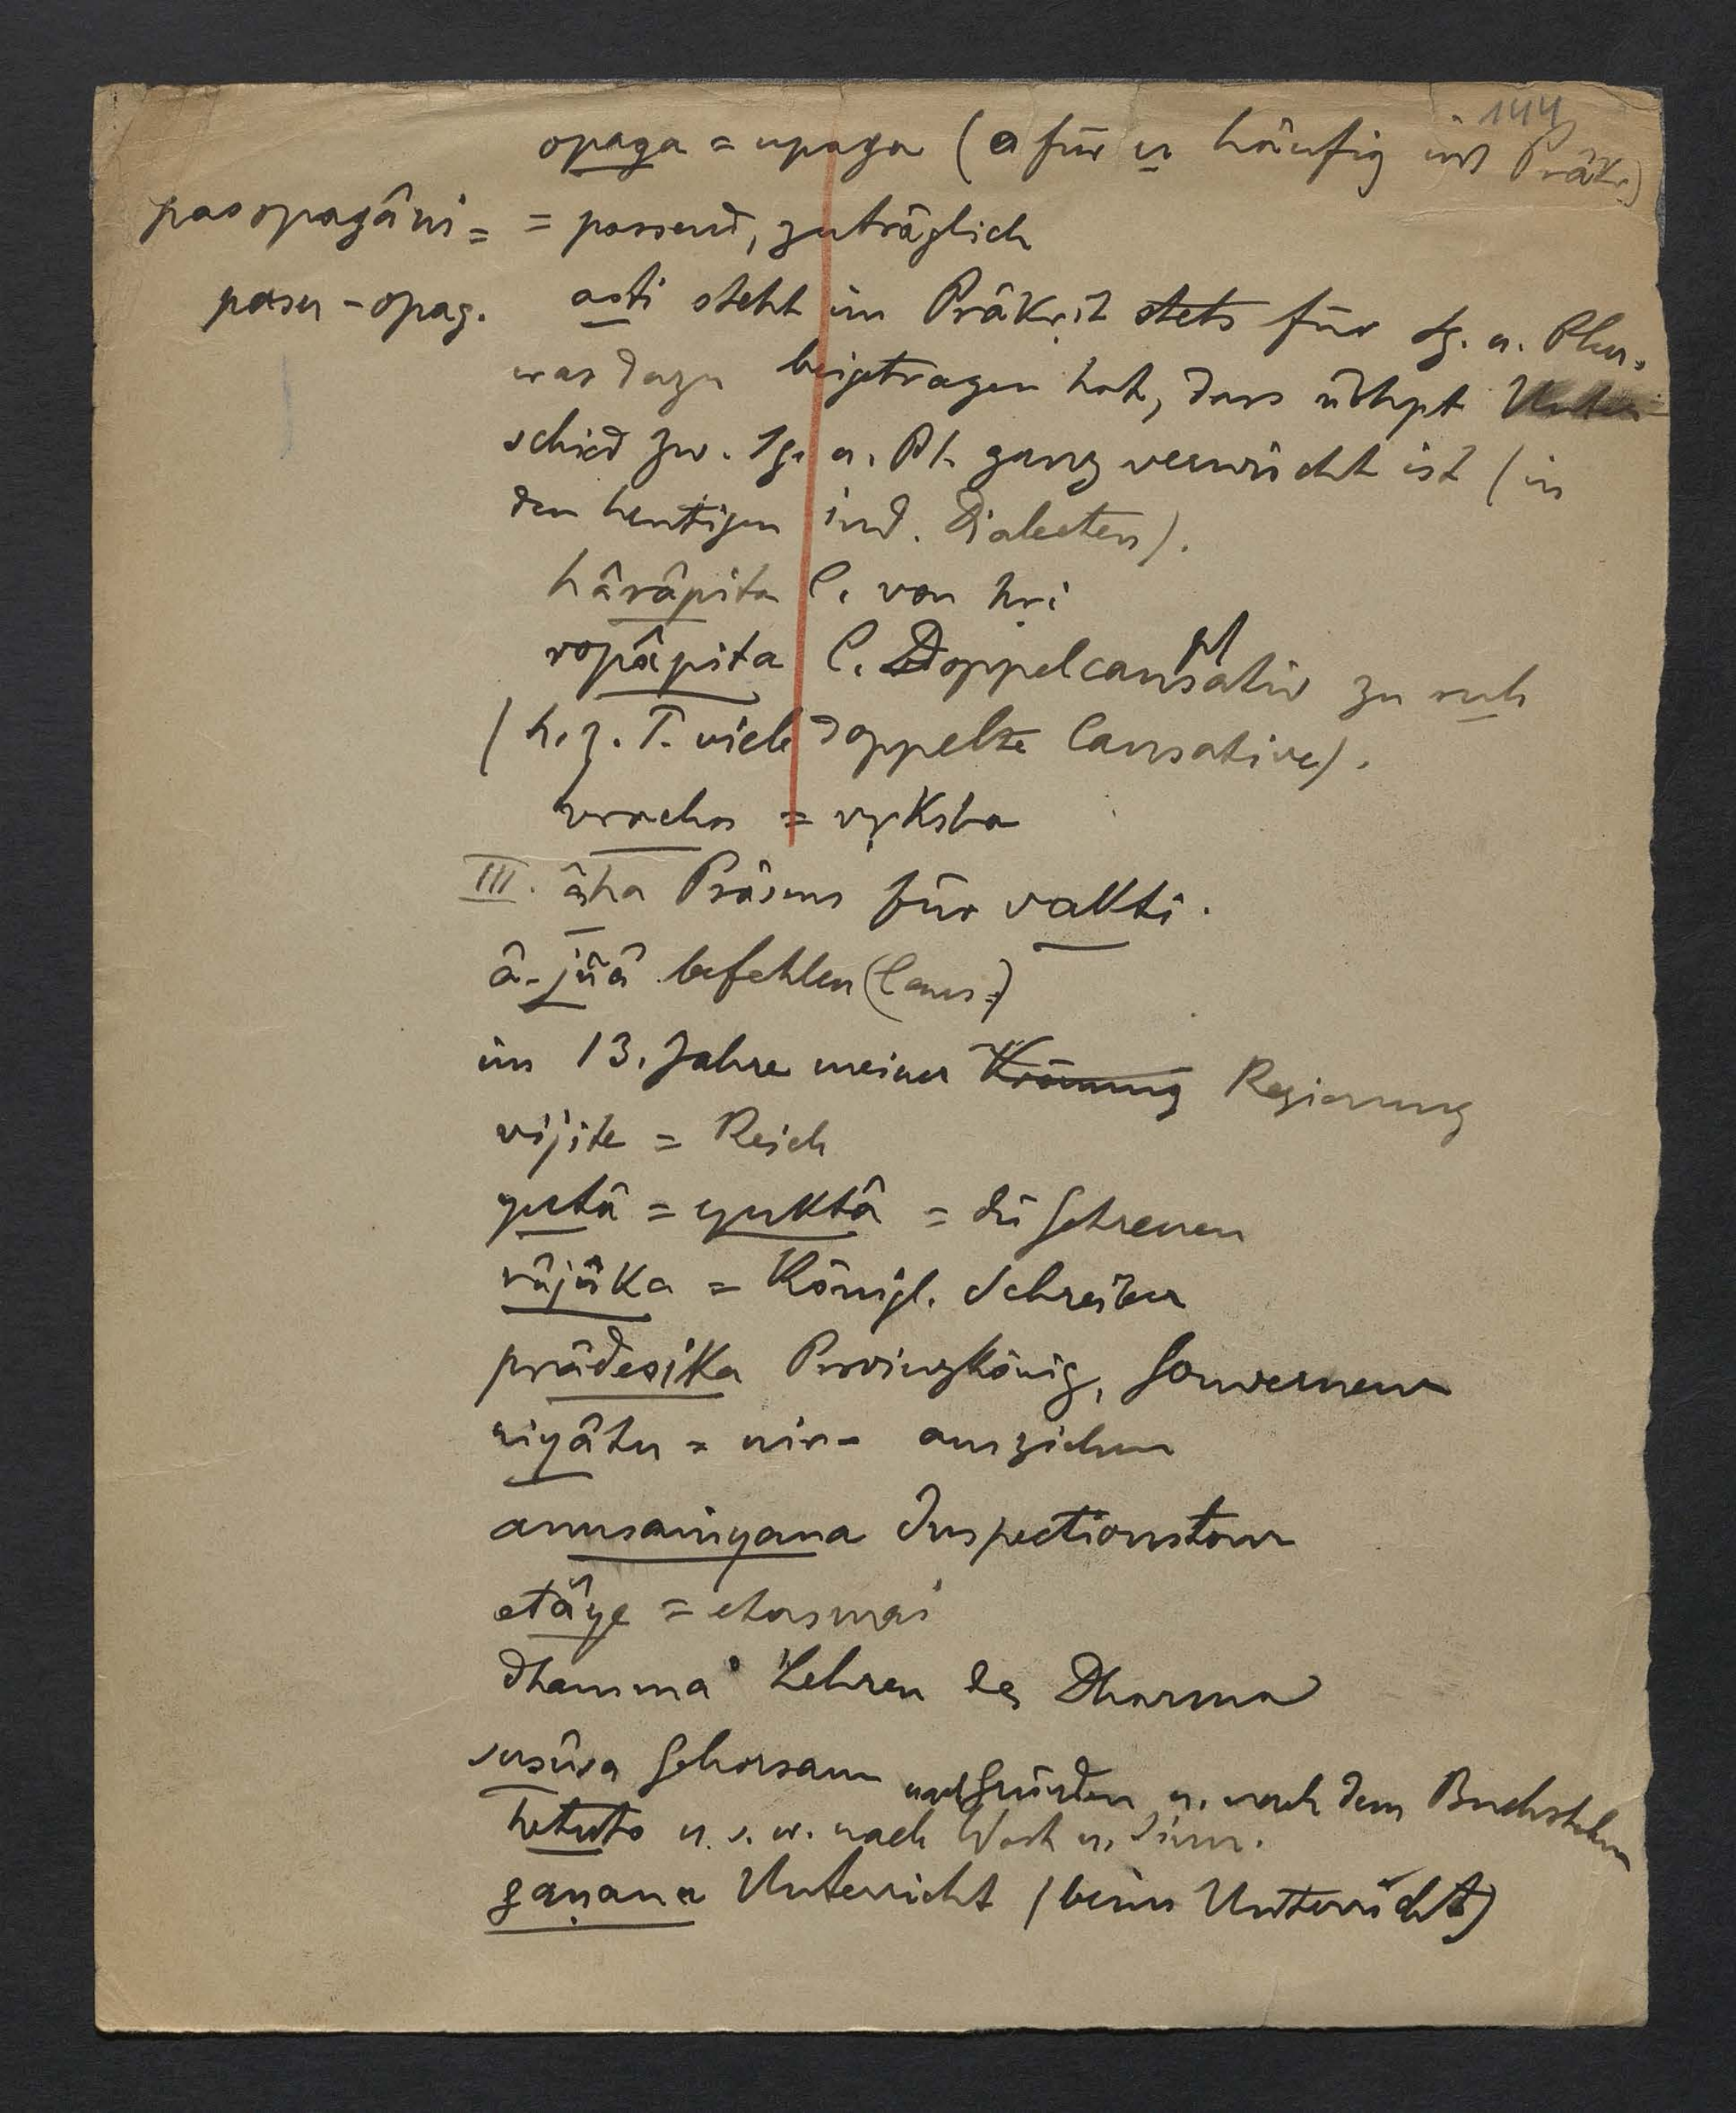 144
opaga = upaga (o für u häufig im Präkr.)
pasopagâni = = passend, zuträglich
pasu-opag. asti steht im Präkrit stets für Sg. u. Plur.,
was dazu beigetragen hat, dass übhpt Unter-
schied zw. Sg. u. Pl. ganz verwischt ist (in
den heutigen ind. Dialecten).
hârâpita C. von hṛi
ropâpita C. Doppelcausativ zu ruh
(h. z. T. viele doppelte Causative).
vracha = vṛksha
III. âha Präsens für vakti.
â-jñâ befehlen (Caus.)
im 13. Jahre meiner Krönung Regierung
vijite = Reich
yutâ = yuktâ = die Getreuen
râjûka = Königl. Schreiber
prâdesika Provinzkönig, Gouverneur
niyâtu = nir- ausziehen
anusaṁyana Inspectionstour
etâye = etasmai
dhamma° Lehren des Dharma
susûsa Gehorsam
nach Gründen u. nach dem Buchstaben
hetuto u. s. w. nach Wort u. Sinn.
gaṇana Unterricht (beim Unterricht)